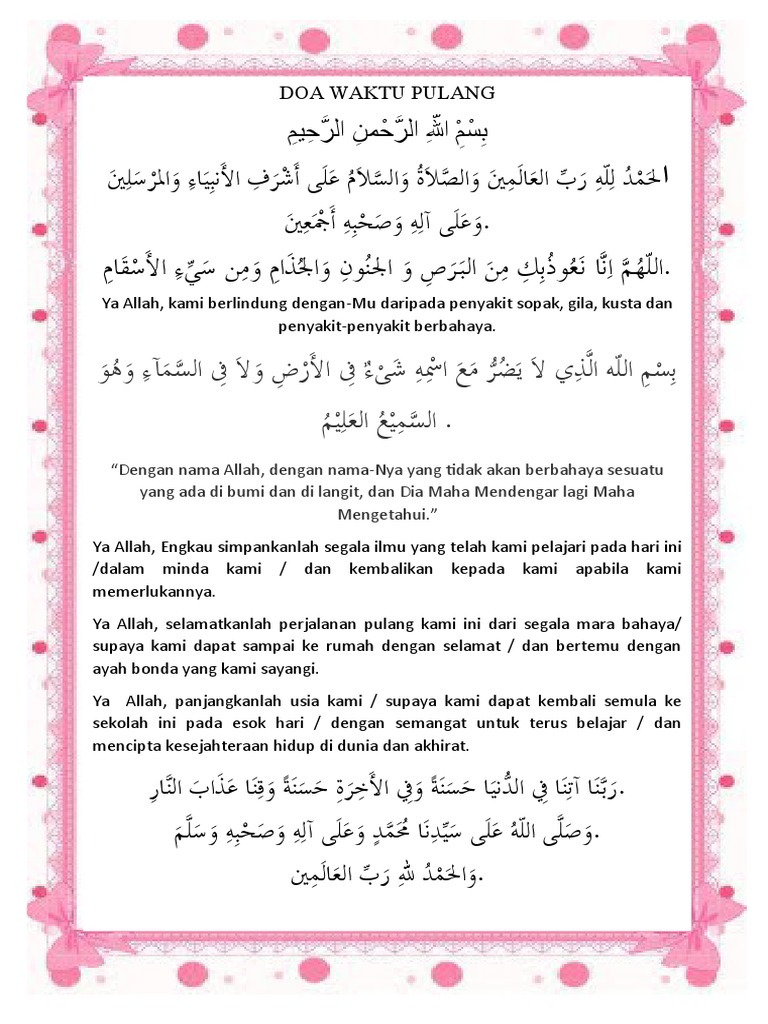 DOA WAKTU PULANG
بِسْمِْ اللَّهِ الرَّحْمنِ الرَّحِيمِ
الحَمْدُ لِلّهِ رَبِّ العَالَمِينَ وَالصَّلاَةُ وَالسَّلاَمُ عَلَى أَشْرَفِ الأَنبِيَاءِ وَالمرْسَلِينَ
وَعَلَى آلِهِ وَصَحْبِهِ أَجْمَعِينَ.
اللّهُمَّ اِنَّا نَعُوذُبِكِ مِنَ البَرَصِ وَ الجنُونِ وَالجُذَامِ وَمِن سَيِّءِ الأَسْقَامِ.
Ya Allah, kami berlindung dengan-Mu daripada penyakit sopak, gila, kusta dan
penyakit-penyakit berbahaya.
بِسْمِ اللّه الَّذِي لاَ يَضُرُّ مَعَ اسْمِهِ شَىْءٌ فِى الأَرْضِ وَلاَ فِى السَّمَآءِ وَهُوَ
السَّمِيْعُ العَلِيْمُ .
“Dengan nama Allah, dengan nama-Nya yang tidak akan berbahaya sesuatu
yang ada di bumi dan di langit, dan Dia Maha Mendengar lagi Maha
Mengetahui.”
Ya Allah, Engkau simpankanlah segala ilmu yang telah kami pelajari pada hari ini
/dalam minda kami / dan kembalikan kepada kami apabila kami
memerlukannya.
Ya Allah, selamatkanlah perjalanan pulang kami ini dari segala mara bahaya/
supaya kami dapat sampai ke rumah dengan selamat / dan bertemu dengan
ayah bonda yang kami sayangi.
Ya Allah, panjangkanlah usia kami / supaya kami dapat kembali semula ke
sekolah ini pada esok hari / dengan semangat untuk terus belajar / dan
mencipta kesejahteraan hidup di dunia dan akhirat.
رَبَّنَا آتِنَا فِي الدُّنيَا حَسَنَةً وَفِي الأَخِرَةِ حَسَنَةً وَقِنَا عَذَابَ النَّارِ.
وَصَلَّى اللّهُ عَلَى سَيِّدِنَا مُحَمَّدٍ وَعَلَى آلِهِ وَصَحْبِهِ وَسَلَّمَ.
وَالحَمْدُ للهِ رَبِّ العَالَمِين.